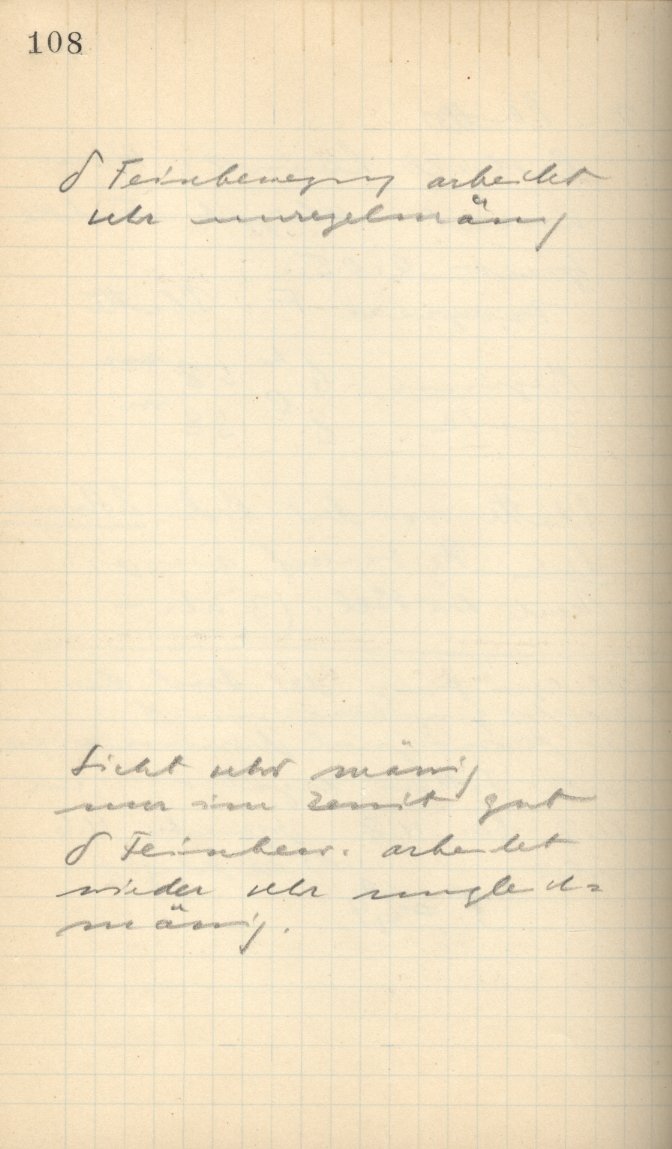 108
δ Feinbewegung arbeitet
sehr unregelmässig
Sicht sehr mässig
nur im Zenit gut
δ Feinbew. arbeitet
wieder sehr ungleich=
mässig.